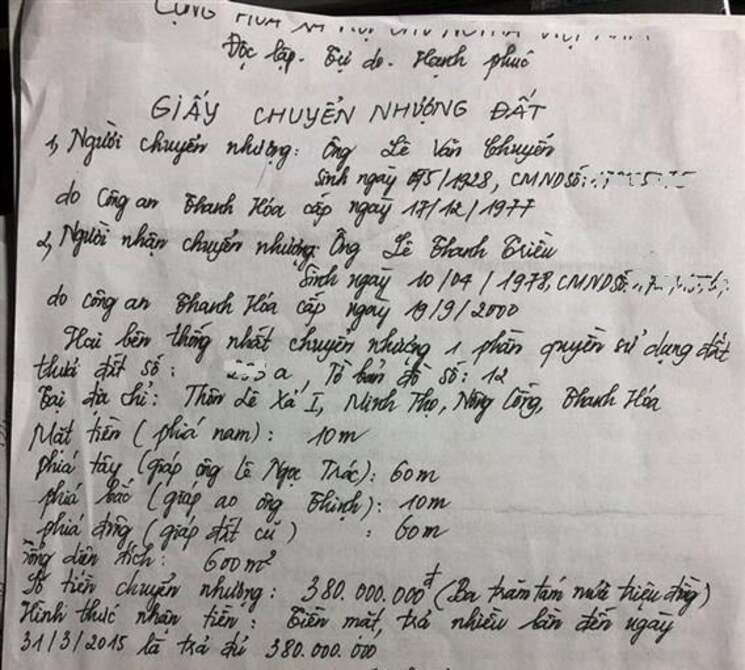 CỘNG HÒA XÃ HỘI CHỦ NGHĨA VIỆT NAM
Độc lập - Tự do - Hạnh phúc
GIẤY CHUYỂN NHƯỢNG ĐẤT
1, Người chuyển nhượng: Ông Lê Văn Chuyến
Sinh ngày /1928, CMND Số:
do Công an Thanh Hóa cấp ngày 17/12/1977
2, Người nhận chuyển nhượng: Ông Lê Thanh Triều
Sinh ngày 10/04/1978, CMND Số:
do công an Thanh Hóa cấp ngày 19/9/2000
Hai bên thống nhất chuyển nhượng 1 phần quyền sử dụng đất
thửa đất số: a, Tờ bản đồ số: 12
Tại địa chỉ: Thôn Lê Xá I, Minh Thọ, Nông Cống, Thanh Hóa
Mặt tiền (phía nam): 10m
phía tây (giáp ông Lê Ngọc Trác): 60m
phía bắc (giáp ao ông Thịnh): 10m
phía đông (giáp đất cũ) : 60m
Tổng diện tích: 600m²
Số tiền chuyển nhượng: 380.000.000đ (Ba trăm tám mươi triệu đồng)
Hình thức nhận tiền: Tiền mặt, trả nhiều lần đến ngày
31/3/2015 là trả đủ 380.000.000